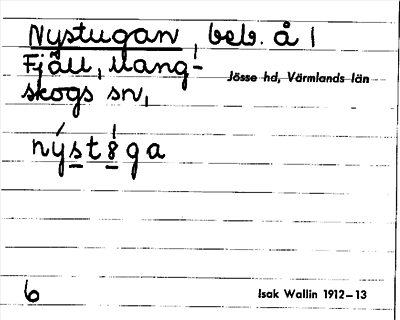 Nystugan, beb. å /
Fjäll, Mang-
Jösse hd, Värmlands län
skogs sn,
nýst8ga
6
Isak Wallin 1912–13